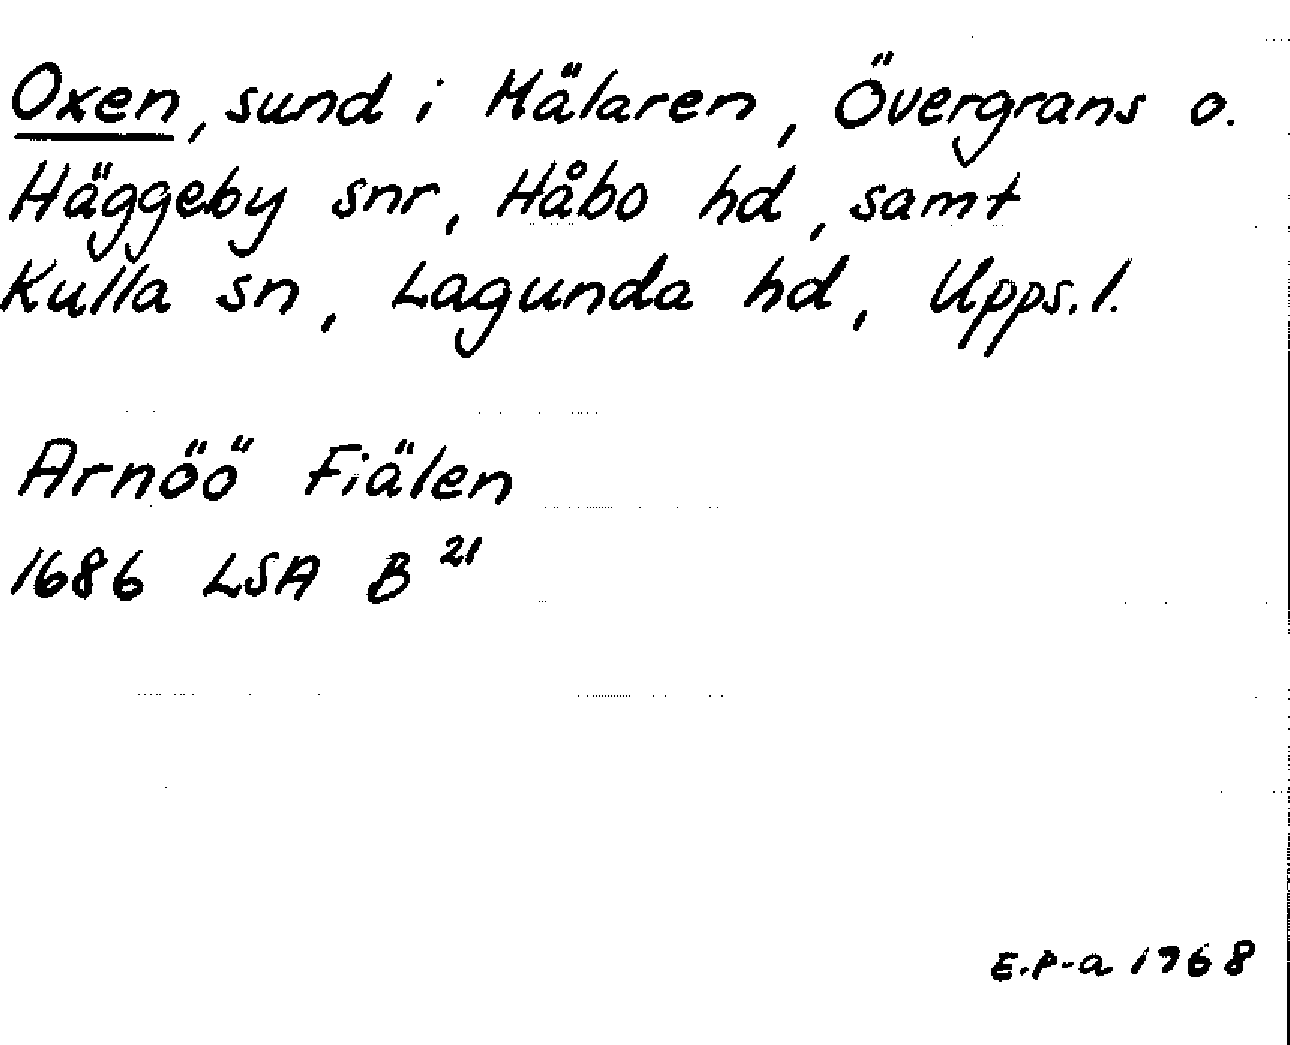 Oxen, sund i Mälaren, Övergrans o.
Häggeby snr, Håbo hd, samt
Kulla sn, Lagunda hd, Upps. l.
Arnöö Fiälen
1686 LSA B 21
E.P-a 1968